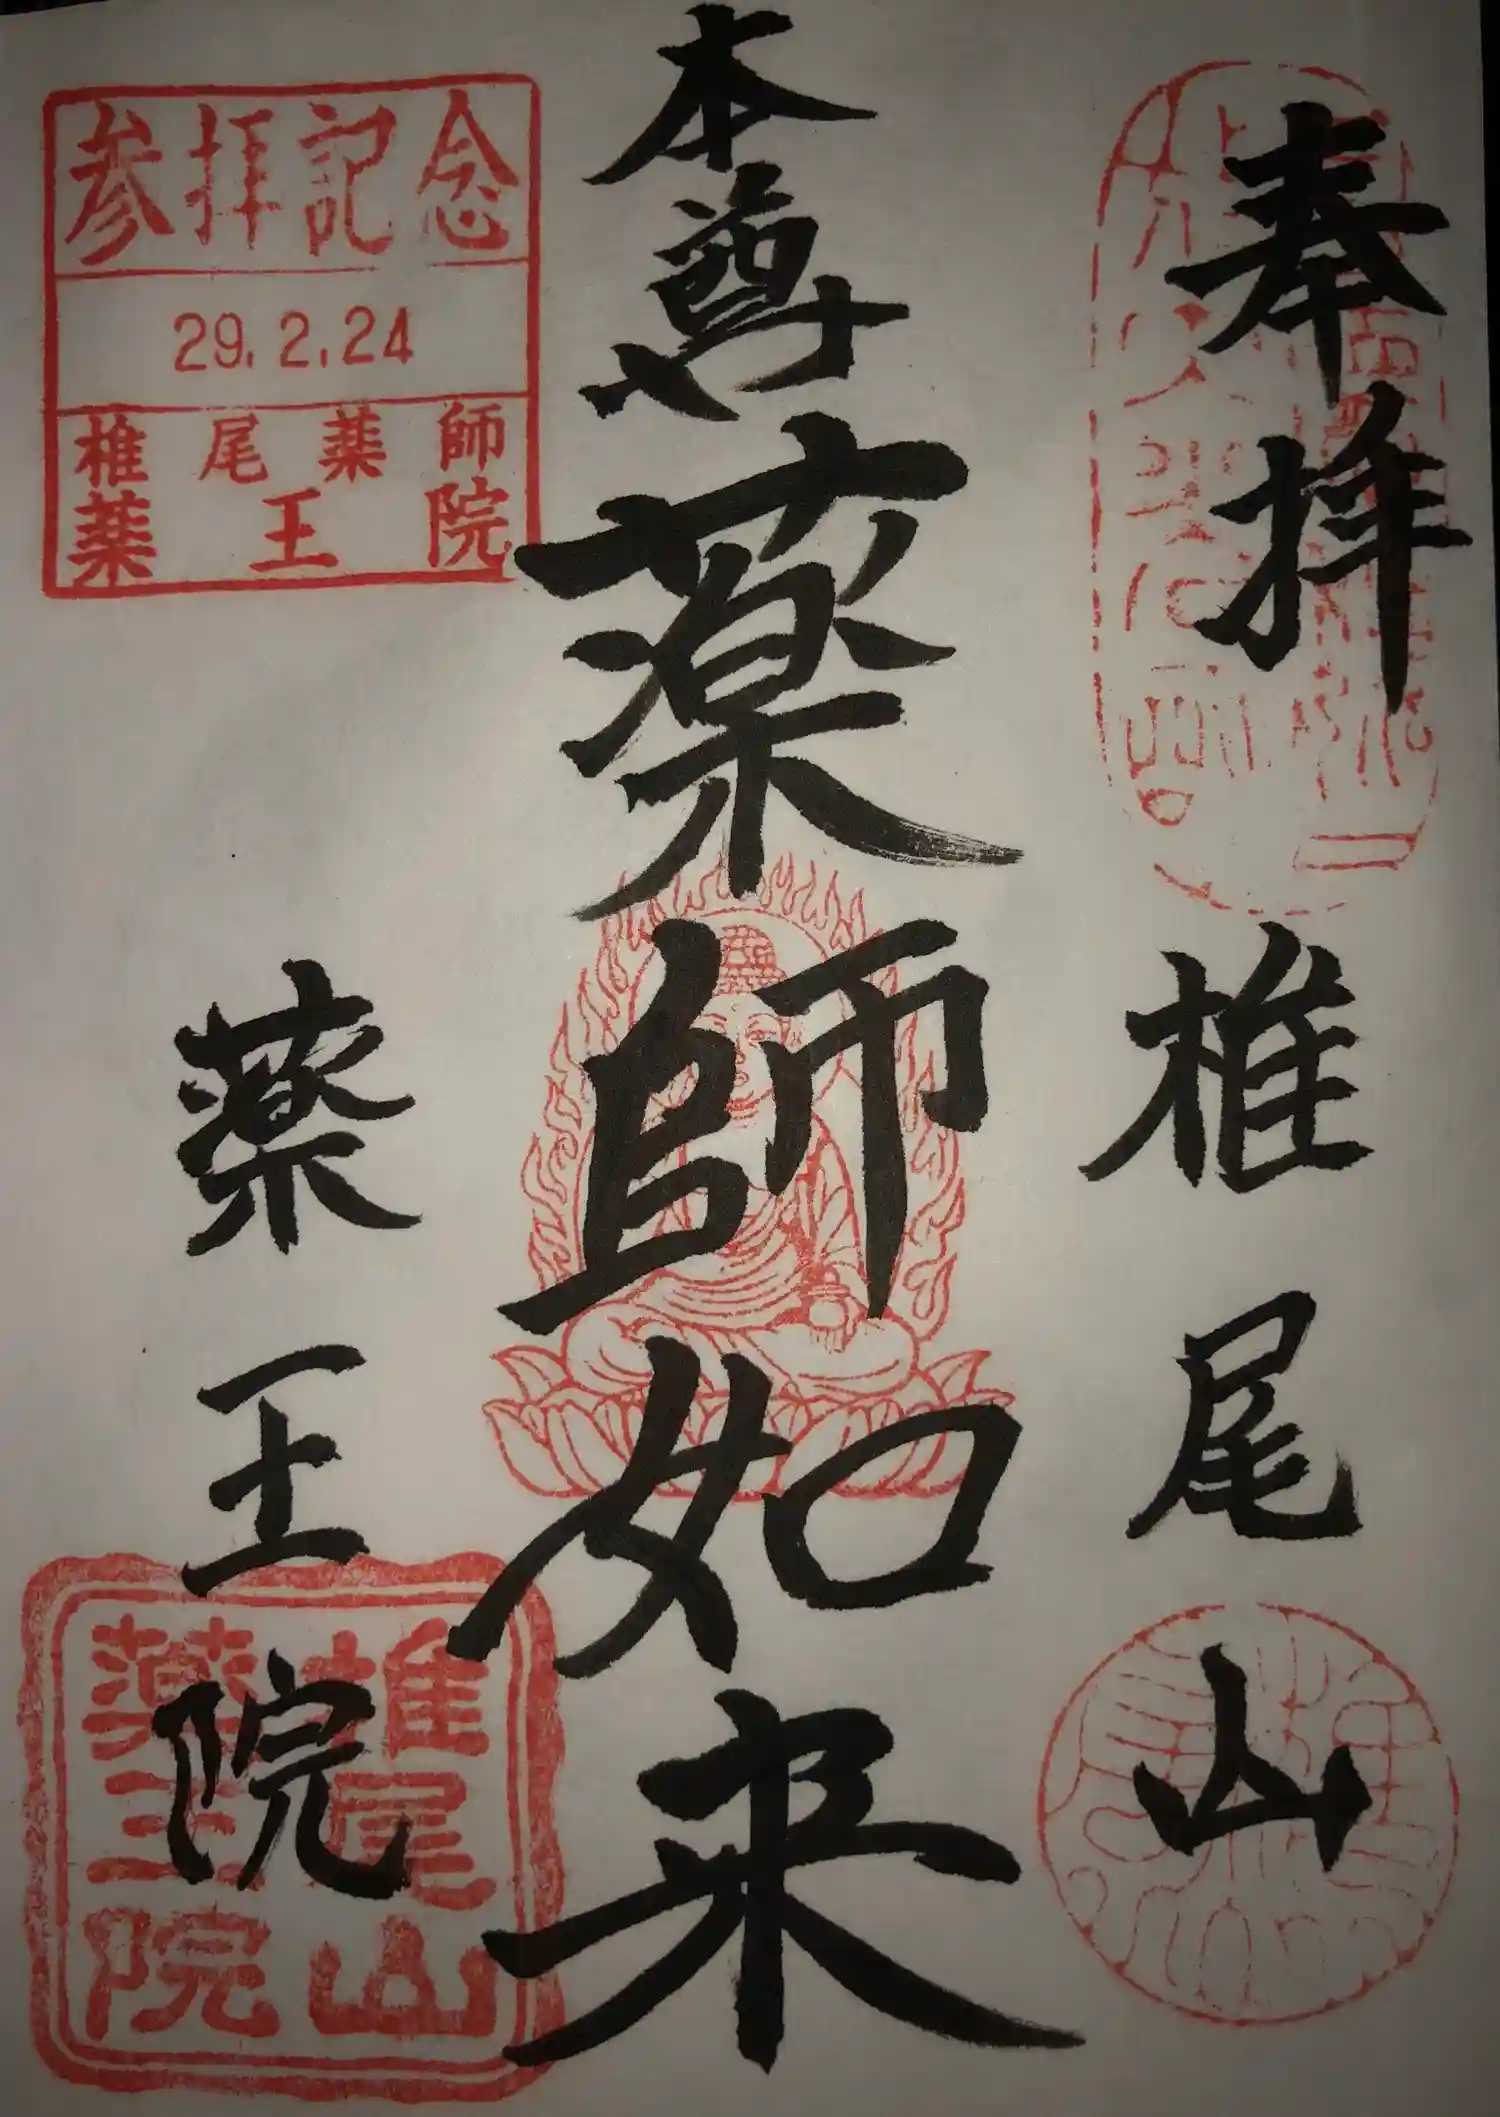 奉拝 椎尾山
本尊 薬師如来
薬王院
参拝記念
29.2.24
椎尾薬師
薬王院
椎尾山
薬王院